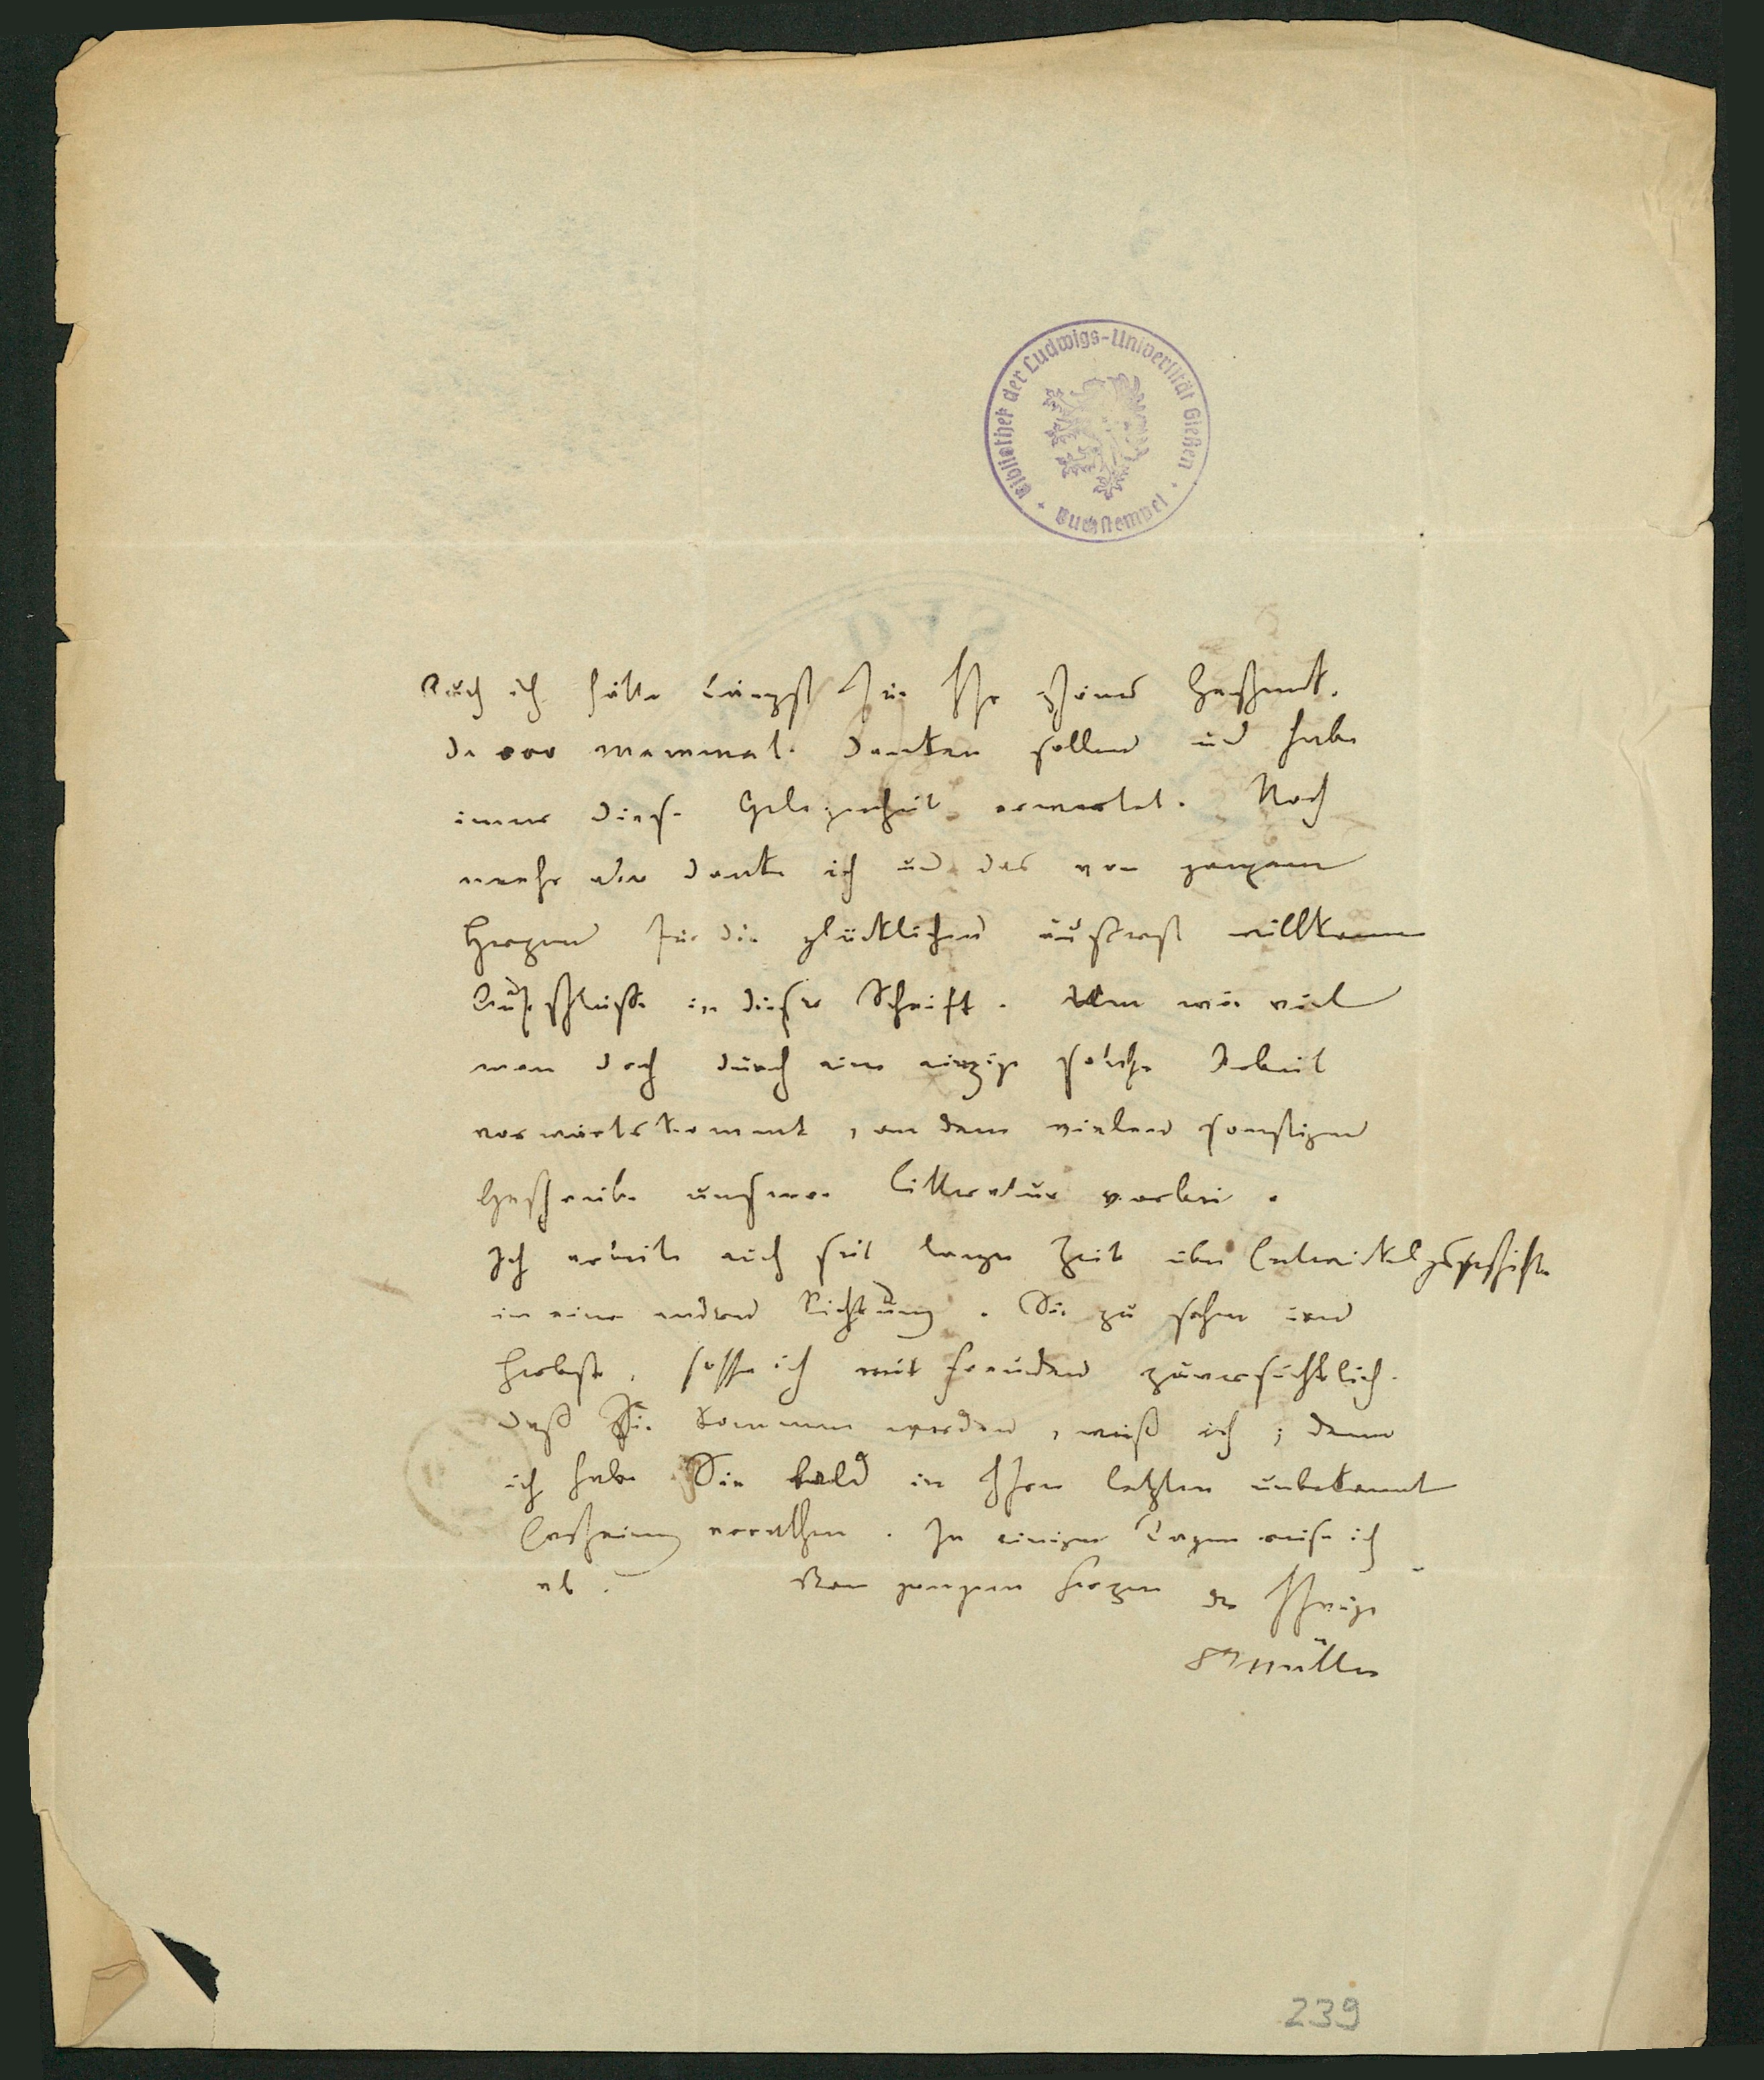 Bibliothek der Ludwigs-Universität Gießen
Buchstempel
OVA
Auch ich hätte längst für Ihr schönes Geschenk
de ovo mammal. danken sollen und habe
immer diese Gelegenheit erwartet. Noch
mehr aber danke ich und das von ganzem
Herzen für die glücklichen äußerst willkommen
Aufschlüsse in dieser Schrift. Um wie viel
man doch durch eine einzige solche Arbeit
vorwärts kommt, an dem vielen sonstigen
Geschreibe unserer Litteratur vorbei.
Ich arbeite auch seit langer Zeit über Entwickelgsgeschichte
in einer andren Richtung. Sie zu sehen im
Herbste, hoffe ich mit Freuden zuversichtlich.
daß Sie kommen werden, weiß ich; denn
ich habe Sie bald in Ihren letzten unbekannt
Erscheinung errathen. In einigen Tagen reise ich
ab. Von ganzem Herzen der Ihrige
JMüller
239